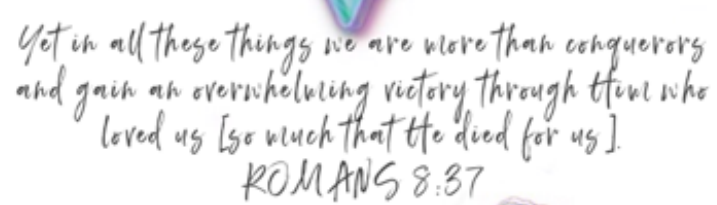 Yet in all these things we are more than conquerors
and gain an overwhelming victory through Him who
loved us [so much that He died for us].
ROMANS 8:37